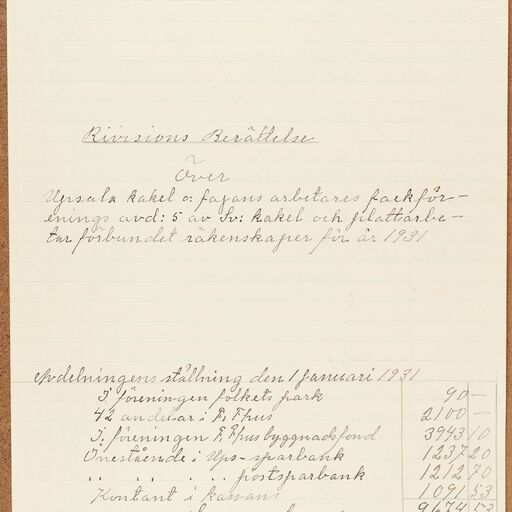 Rivisions Berättelse
Över
Upsala kakel o: fajans arbetares fackför-
enings avd: 5 av Sv: kakel och plattarbe-
tar förbundet räkenskaper för år 1931
Avdelningens ställning den 1 Januari 1931
I föreningen folkets park 90 -
42 andelar i F, F, hus 2100 -
I, föreningen F, F, hus byggnadsfond 3943 10
Inestående i Ups-sparbank 1237 20
„ „ „ „ postsparbank 1212 70
Kontant i kassans 1091 53
9674 53